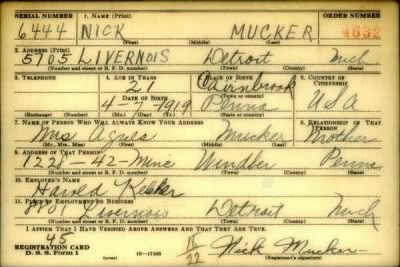 SERIAL NUMBER 1. NAME (Print) ORDER NUMBER
6444 NICK MUCKER 4632
(First) (Middle) (Last)
2. ADDRESS (Print)
5705 LIVERNOIS Detroit Mich
(Number and street or R. F. D. number) (Town) (County) (State)
3. TELEPHONE 4. AGE IN YEARS 5. PLACE OF BIRTH 6. COUNTRY OF CITIZENSHIP
21 Cairnbrook
DATE OF BIRTH (Town or county)
4-7-1919 Penna USA
(Exchange) (Number) (Mo.) (Day) (Yr.) (State or country)
7. NAME OF PERSON WHO WILL ALWAYS KNOW YOUR ADDRESS 8. RELATIONSHIP OF THAT PERSON
Mrs Agnes Mucker Mother
(Mr., Mrs., Miss) (First) (Middle) (Last)
9. ADDRESS OF THAT PERSON
1221-42-Mine Windber Penna
(Number and street or R. F. D. number) (Town) (County) (State)
10. EMPLOYER'S NAME
Harold
11. PLACE OF EMPLOYMENT OR BUSINESS
Livernois Detroit Mich
(Number and street or R. F. D. number) (Town) (County) (State)
I AFFIRM THAT I HAVE VERIFIED ABOVE ANSWERS AND THAT THEY ARE TRUE.
45
REGISTRATION CARD
D. S. S. Form 1 16-17105 Nick Mucker
(Registrant's signature)